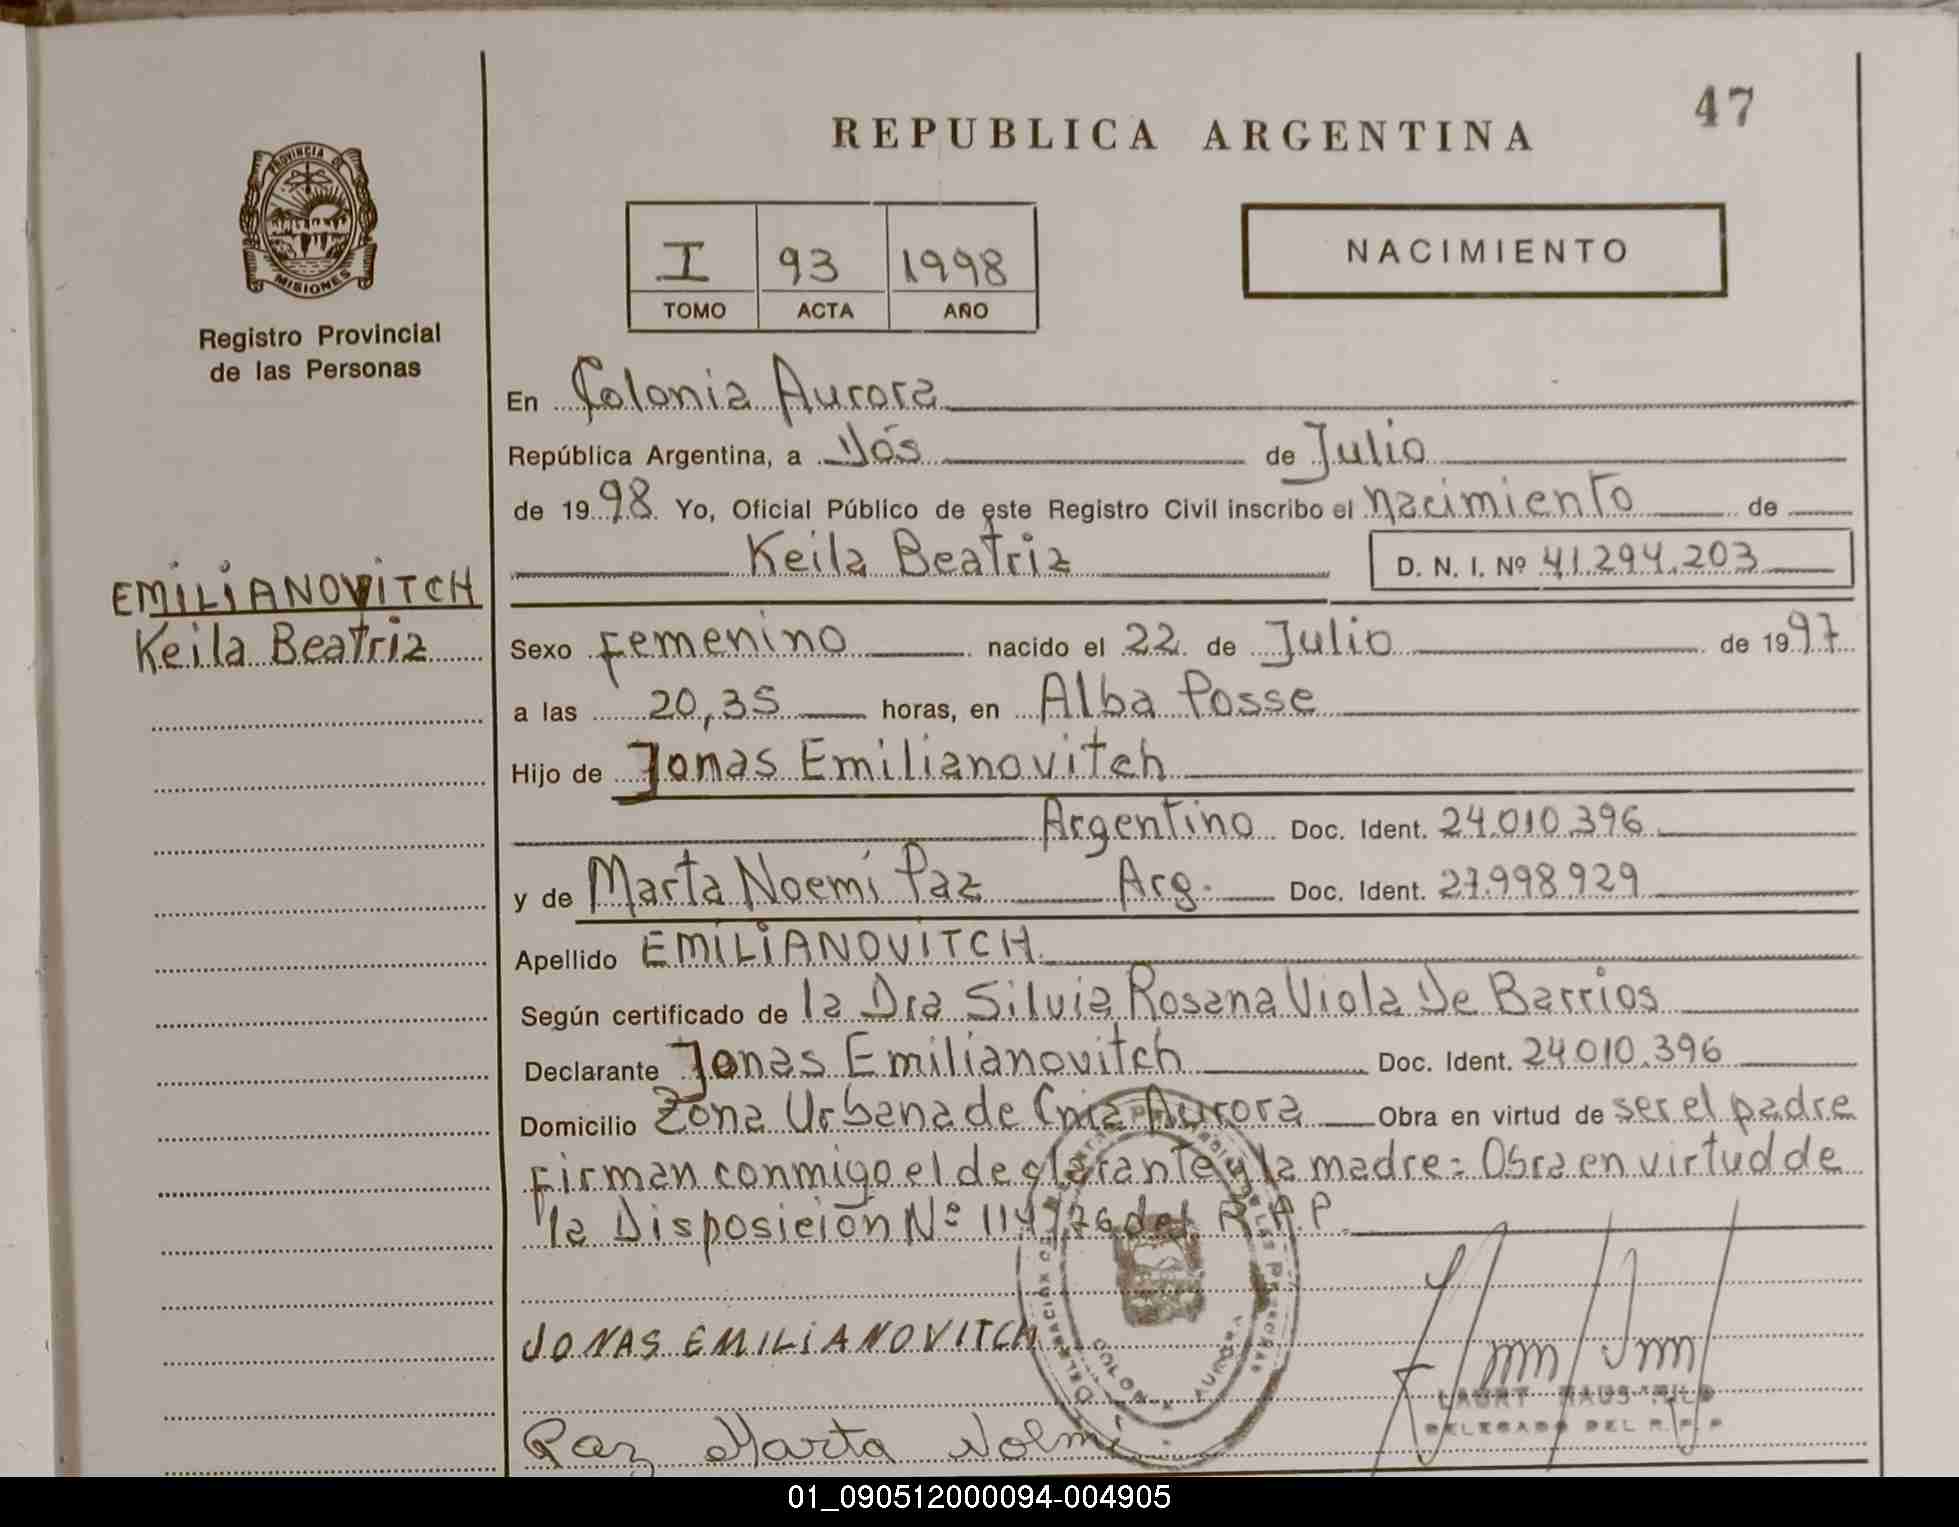 47
REPUBLICA ARGENTINA
PROVINCIA DE
MISIONES
Registro Provincial
de las Personas
I 93 1998
TOMO ACTA AÑO
NACIMIENTO
En Colonia Aurora
República Argentina, a Dós de Julio
de 1998 Yo, Oficial Público de este Registro Civil inscribo el nacimiento de
Keila Beatriz D. N. I. Nº 41.294.203
EMILIANOVITCH
Keila Beatriz
Sexo Femenino nacido el 22 de Julio de 1997
a las 20,35 horas, en Alba Posse
Hijo de Jonas Emilianovitch
Argentino Doc. Ident. 24.010.396
y de Marta Noemí Paz Arg. Doc. Ident. 27.998.929
Apellido EMILIANOVITCH
Según certificado de la Dra Silvia Rosana Viola De Barrios
Declarante Jonas Emilianovitch Doc. Ident. 24.010.396
Domicilio Zona Urbana de Cnia Aurora Obra en virtud de ser el padre
Firman conmigo el declarante y la madre = Obra en virtud de
la Disposición Nº 114/76 del R.P.
JONAS EMILIANOVITCH
Paz Marta Noemi
DELEGADO DEL R. P. P
01_090512000094-004905